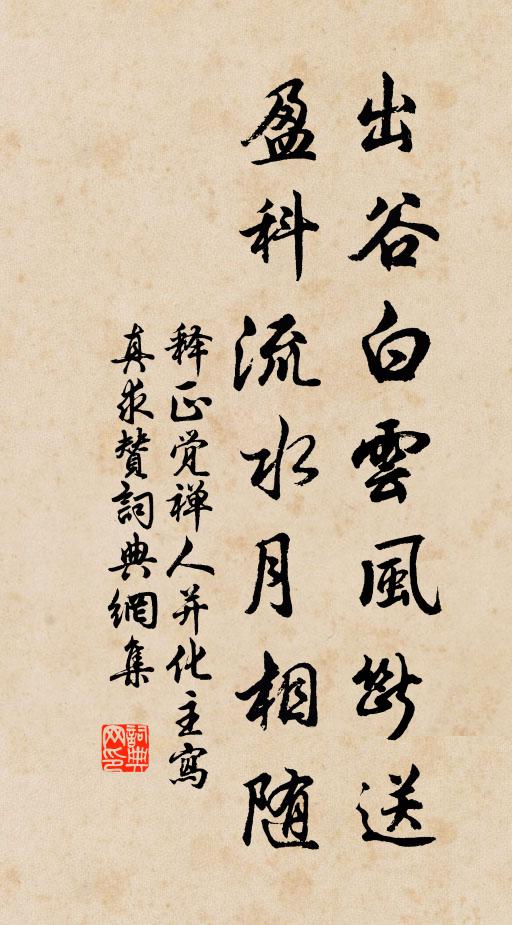 出谷白雲風断送
盈科流水月相随
释正觉禅人并化主寫
真求贊詞典網集
詞典网印